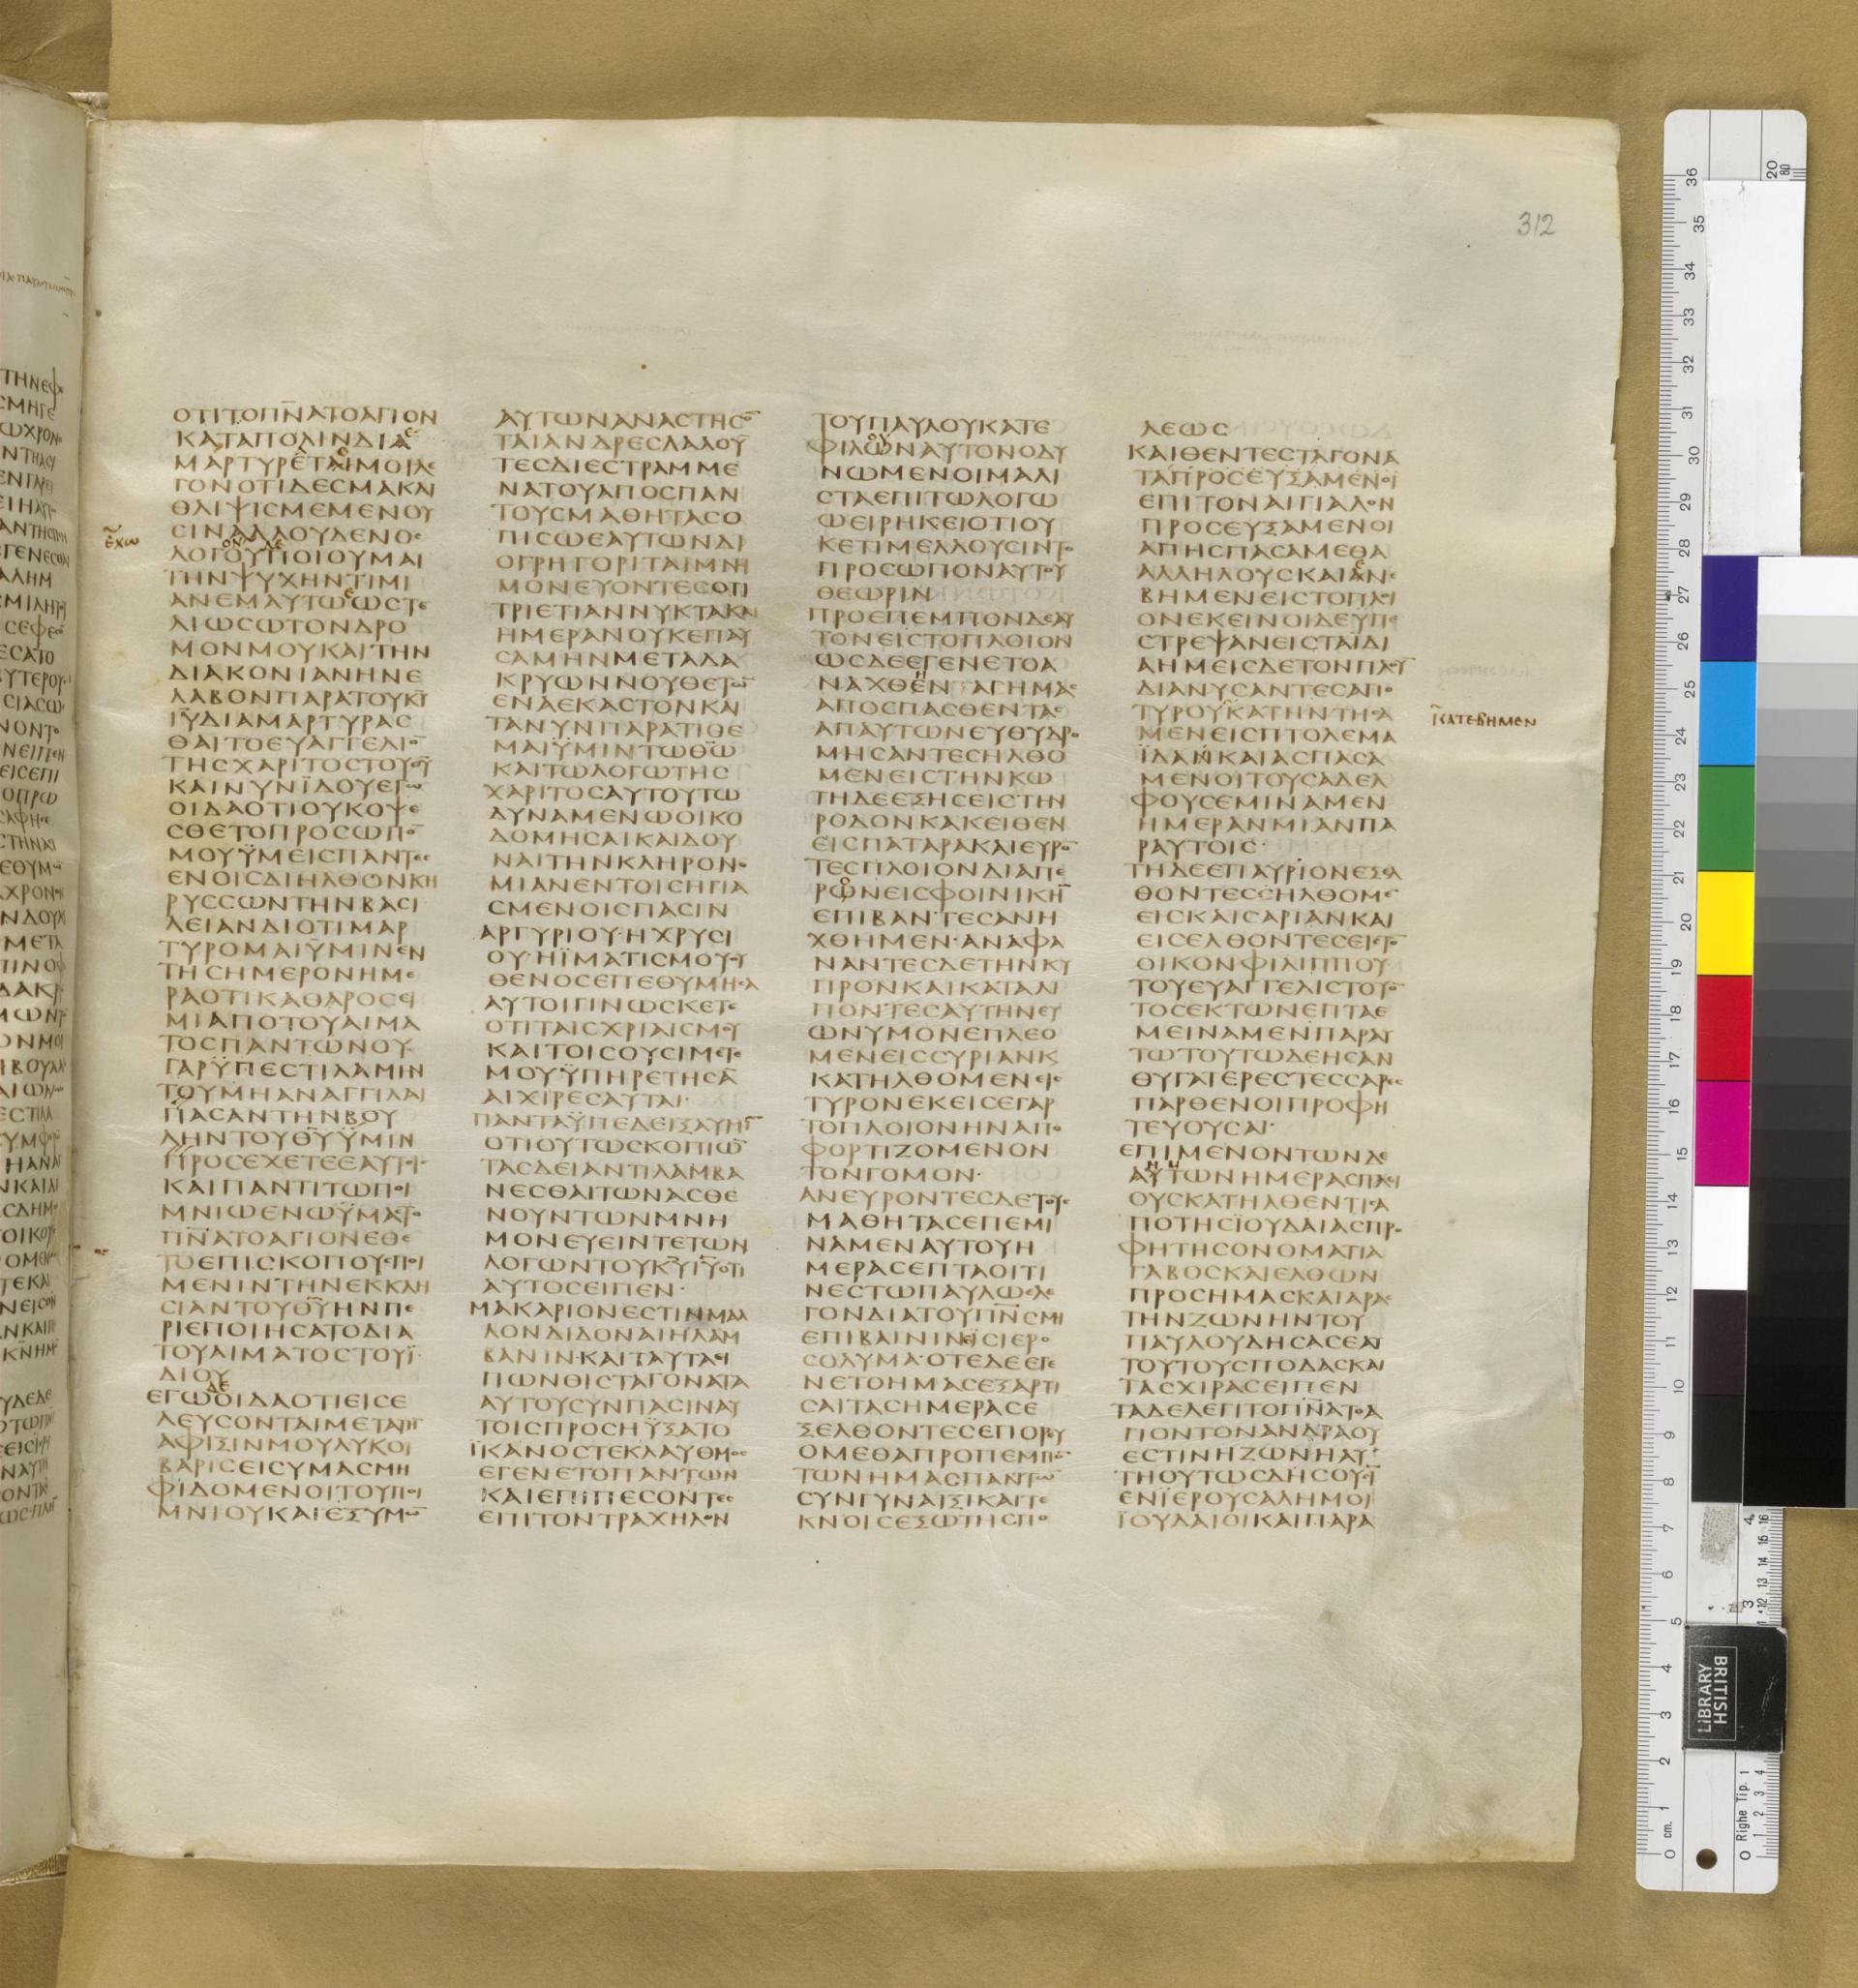 312
ΟΤΙΤΟΠΝ̅ΑΤΟΑΓΙΟΝ
ΚΑΤΑΠΟΛΙΝΔΙΑ
ΜΑΡΤΥΡΕΤΑΙΜΟΙΛΕ
ΓΟΝΟΤΙΔΕΣΜΑΚΑΙ
ΘΛΙΨΙΣΜΕΜΕΝΟΥ
ΣΙΝΑΛΛΟΥΔΕΝΟΣ
ΛΟΓΟΥΠΟΙΟΥΜΑΙ
ΤΗΝΨΥΧΗΝΤΙΜΙ
ΑΝΕΜΑΥΤΩΩΣΤΕ
ΛΙΩΣΩΤΟΝΔΡΟ
ΜΟΝΜΟΥΚΑΙΤΗΝ
ΔΙΑΚΟΝΙΑΝΗΝΕ
ΛΑΒΟΝΠΑΡΑΤΟΥΚΥ̅
ΙΥ̅ΔΙΑΜΑΡΤΥΡΑΣ
ΘΑΙΤΟΕΥΑΓΓΕΛΙΟ̅
ΤΗΣΧΑΡΙΤΟΣΤΟΥΘΥ̅
ΚΑΙΝΥΝΪΔΟΥΕΓΩ
ΟΙΔΑΟΤΙΟΥΚΟΨΕ
ΣΘΕΤΟΠΡΟΣΩΠΟ̅
ΜΟΥΫΜΕΙΣΠΑΝΤΕΣ
ΕΝΟΙΣΔΙΗΛΘΟΝΚΗ
ΡΥΣΣΩΝΤΗΝΒΑΣΙ
ΛΕΙΑΝΔΙΟΤΙΜΑΡ
ΤΥΡΟΜΑΙΫΜΙΝΕΝ
ΤΗΣΗΜΕΡΟΝΗΜΕ
ΡΑΟΤΙΚΑΘΑΡΟΣΕΙ
ΜΙΑΠΟΤΟΥΑΙΜΑ
ΤΟΣΠΑΝΤΩΝΟΥ
ΓΑΡΫΠΕΣΤΙΛΑΜΗΝ
ΤΟΥΜΗΑΝΑΓΓΙΛΑΙ
ΠΑΣΑΝΤΗΝΒΟΥ
ΛΗΝΤΟΥΘΥ̅ΫΜΙΝ
ΠΡΟΣΕΧΕΤΕΕΑΥΤΟΙΣ
ΚΑΙΠΑΝΤΙΤΩΠΟΙ
ΜΝΙΩΕΝΩΫΜΑΣΤΟ
ΠΝ̅ΑΤΟΑΓΙΟΝΕΘΕ
ΤΟΕΠΙΣΚΟΠΟΥΣΠΟΙ
ΜΕΝΙΝΤΗΝΕΚΚΛΗ
ΣΙΑΝΤΟΥΘΥ̅ΗΝΠΕ
ΡΙΕΠΟΙΗΣΑΤΟΔΙΑ
ΤΟΥΑΙΜΑΤΟΣΤΟΥΪ
ΔΙΟΥ
ΕΓΩΟΙΔΑΟΤΙΕΙΣΕ
ΛΕΥΣΟΝΤΑΙΜΕΤΑΤΗ̅
ΑΦΙΞΙΝΜΟΥΛΥΚΟΙ
ΒΑΡΙΣΕΙΣΥΜΑΣΜΗ
ΦΙΔΟΜΕΝΟΙΤΟΥΠΟΙ
ΜΝΙΟΥΚΑΙΕΞΥΜΩ̅
ΕΧΩ
ΑΥΤΩΝΑΝΑΣΤΗΣΟ̅
ΤΑΙΑΝΔΡΕΣΛΑΛΟΥ̅
ΤΕΣΔΙΕΣΤΡΑΜΜΕ
ΝΑΤΟΥΑΠΟΣΠΑΝ
ΤΟΥΣΜΑΘΗΤΑΣΟ
ΠΙΣΩΕΑΥΤΩΝΔΙ
ΟΓΡΗΓΟΡΙΤΑΙΜΝΗ
ΜΟΝΕΥΟΝΤΕΣΟΤΙ
ΤΡΙΕΤΙΑΝΝΥΚΤΑΚΑΙ
ΗΜΕΡΑΝΟΥΚΕΠΑΥ
ΣΑΜΗΝΜΕΤΑΔΑ
ΚΡΥΩΝΝΟΥΘΕΤΩ̅
ΕΝΑΕΚΑΣΤΟΝΚΑΙ
ΤΑΝΥΝΠΑΡΑΤΙΘΕ
ΜΑΙΫΜΙΝΤΩΘΩ̅
ΚΑΙΤΩΛΟΓΩΤΗΣ
ΧΑΡΙΤΟΣΑΥΤΟΥΤΩ
ΔΥΝΑΜΕΝΩΟΙΚΟ
ΔΟΜΗΣΑΙΚΑΙΔΟΥ
ΝΑΙΤΗΝΚΛΗΡΟΝΟ
ΜΙΑΝΕΝΤΟΙΣΗΓΙΑ
ΣΜΕΝΟΙΣΠΑΣΙΝ
ΑΡΓΥΡΙΟΥ·ΗΧΡΥΣΙ
ΟΥ·ΗΪΜΑΤΙΣΜΟΥΟΥ
ΘΕΝΟΣΕΠΕΘΥΜΗΣΑ
ΑΥΤΟΙΓΙΝΩΣΚΕΤΕ
ΟΤΙΤΑΙΣΧΡΙΑΙΣΜΟΥ
ΚΑΙΤΟΙΣΟΥΣΙΜΕΤΕ
ΜΟΥΫΠΗΡΕΤΗΣΑ̅
ΑΙΧΙΡΕΣΑΥΤΑΙ·
ΠΑΝΤΑΫΠΕΔΕΙΞΑΫΜΙ̅
ΟΤΙΟΥΤΩΣΚΟΠΙΩ̅
ΤΑΣΔΕΙΑΝΤΙΛΑΜΒΑ
ΝΕΣΘΑΙΤΩΝΑΣΘΕ
ΝΟΥΝΤΩΝΜΝΗ
ΜΟΝΕΥΕΙΝΤΕΤΩΝ
ΛΟΓΩΝΤΟΥΚΥ̅ΙΥ̅ΟΤΙ
ΑΥΤΟΣΕΙΠΕΝ·
ΜΑΚΑΡΙΟΝΕΣΤΙΝΜΑΛ
ΛΟΝΔΙΔΟΝΑΙΗΛΑΜ
ΒΑΝΙΝ·ΚΑΙΤΑΥΤΑΕΙ
ΠΩΝΘΙΣΤΑΓΟΝΑΤΑ
ΑΥΤΟΥΣΥΝΠΑΣΙΝΑΥ
ΤΟΙΣΠΡΟΣΗΫΞΑΤΟ
ΪΚΑΝΟΣΤΕΚΛΑΥΘΜΟΣ
ΕΓΕΝΕΤΟΠΑΝΤΩΝ
ΚΑΙΕΠΙΠΕΣΟΝΤΕΣ
ΕΠΙΤΟΝΤΡΑΧΗΛΟΝ
ΤΟΥΠΑΥΛΟΥΚΑΤΕ
ΦΙΛΩΝΑΥΤΟΝΟΔΥ
ΝΩΜΕΝΟΙΜΑΛΙ
ΣΤΑΕΠΙΤΩΛΟΓΩ
ΩΕΙΡΗΚΕΙΟΤΙΟΥ
ΚΕΤΙΜΕΛΛΟΥΣΙΝΤΟ
ΠΡΟΣΩΠΟΝΑΥΤΟΥ
ΘΕΩΡΙΝ
ΠΡΟΕΠΕΜΠΟΝΔΕΑΥ
ΤΟΝΕΙΣΤΟΠΛΟΙΟΝ
ΩΣΔΕΕΓΕΝΕΤΟΑ
ΝΑΧΘΕΝ ΑΣΗΜΑΣ
ΑΠΟΣΠΑΣΘΕΝΤΑΣ
ΑΠΑΥΤΩΝΕΥΘΥΔΡΟ
ΜΗΣΑΝΤΕΣΗΛΘΟ
ΜΕΝΕΙΣΤΗΝΚΩ
ΤΗΔΕΕΞΗΣΕΙΣΤΗΝ
ΡΟΔΟΝΚΑΚΕΙΘΕΝ
ΕΙΣΠΑΤΑΡΑΚΑΙΕΥΡΟ̅
ΤΕΣΠΛΟΙΟΝΔΙΑΠΕ
ΡΩΝΕΙΣΦΟΙΝΙΚΗ̅
ΕΠΙΒΑΝΤΕΣΑΝΗ
ΧΘΗΜΕΝ·ΑΝΑΦΑ
ΝΑΝΤΕΣΔΕΤΗΝΚΥ
ΠΡΟΝΚΑΙΚΑΤΑΛΙ
ΠΟΝΤΕΣΑΥΤΗΝΕΥ
ΩΝΥΜΟΝΕΠΛΕΟ
ΜΕΝΕΙΣΣΥΡΙΑΝΚ
ΚΑΤΗΛΘΟΜΕΝΕΙΣ
ΤΥΡΟΝΕΚΕΙΣΕΓΑΡ
ΤΟΠΛΟΙΟΝΗΝΑΠΟ
ΦΟΡΤΙΖΟΜΕΝΟΝ
ΤΟΝΓΟΜΟΝ·
ΑΝΕΥΡΟΝΤΕΣΔΕΤΟΥΣ
ΜΑΘΗΤΑΣΕΠΕΜΙ
ΝΑΜΕΝΑΥΤΟΥΗ
ΜΕΡΑΣΕΠΤΑΟΙΤΙ
ΝΕΣΤΩΠΑΥΛΩΕΛΕ
ΓΟΝΔΙΑΤΟΥΠΝ̅ΣΜΗ
ΕΠΙΒΑΙΝΙΝΕΙΣΙΕΡΟ
ΣΟΛΥΜΑ·ΟΤΕΔΕΕΓΕ
ΝΕΤΟΗΜΑΣΕΞΑΡΤΙ
ΣΑΙΤΑΣΗΜΕΡΑΣΕ
ΞΕΛΘΟΝΤΕΣΕΠΟΡΕΥ
ΟΜΕΘΑΠΡΟΠΕΜΠΟ̅
ΤΩΝΗΜΑΣΠΑΝΤΩ̅
ΣΥΝΓΥΝΑΙΞΙΚΑΙΤΕ
ΚΝΟΙΣΕΞΩΤΗΣΠΟ
ΛΕΩΣ
ΚΑΙΘΕΝΤΕΣΤΑΓΟΝΑ
ΤΑΠΡΟΣΕΥΞΑΜΕΝΟΙ
ΕΠΙΤΟΝΑΙΓΙΑΛΟΝ
ΠΡΟΣΕΥΞΑΜΕΝΟΙ
ΑΠΗΣΠΑΣΑΜΕΘΑ
ΑΛΛΗΛΟΥΣΚΑΙΑΝΕ
ΒΗΜΕΝΕΙΣΤΟΠΛΟΙ
ΟΝΕΚΕΙΝΟΙΔΕΫΠΕ
ΣΤΡΕΨΑΝΕΙΣΤΑΪΔΙ
ΑΗΜΕΙΣΔΕΤΟΝΠΛΟΥ̅
ΔΙΑΝΥΣΑΝΤΕΣΑΠΟ
ΤΥΡΟΥΚΑΤΗΝΤΗΣΑ
ΜΕΝΕΙΣΠΤΟΛΕΜΑ
ΪΔΑΝΚΑΙΑΣΠΑΣΑ
ΜΕΝΟΙΤΟΥΣΑΔΕΛ
ΦΟΥΣΕΜΙΝΑΜΕΝ
ΗΜΕΡΑΝΜΙΑΝΠΑ
ΡΑΥΤΟΙΣ·
ΤΗΔΕΕΠΑΥΡΙΟΝΕΞΕΛ
ΘΟΝΤΕΣΗΛΘΟΜΕ̅
ΕΙΣΚΑΙΣΑΡΙΑΝΚΑΙ
ΕΙΣΕΛΘΟΝΤΕΣΕΙΣΤΟ̅
ΟΙΚΟΝΦΙΛΙΠΠΟΥ
ΤΟΥΕΥΑΓΓΕΛΙΣΤΟΥΟ̅
ΤΟΣΕΚΤΩΝΕΠΤΑΕ
ΜΕΙΝΑΜΕΝΠΑΡΑΥ
ΤΩΤΟΥΤΩΔΕΗΣΑΝ
ΘΥΓΑΤΕΡΕΣΤΕΣΣΑΡΕΣ
ΠΑΡΘΕΝΟΙΠΡΟΦΗ
ΤΕΥΟΥΣΑΙ·
ΕΠΙΜΕΝΟΝΤΩΝΔΕ
ΑΥΤΩΝΗΜΕΡΑΣΠΛΕΙ
ΟΥΣΚΑΤΗΛΘΕΝΤΙΣΑ
ΠΟΤΗΣΪΟΥΔΑΙΑΣΠΡΟ
ΦΗΤΗΣΟΝΟΜΑΤΙΑ
ΓΑΒΟΣΚΑΙΕΛΘΩΝ
ΠΡΟΣΗΜΑΣΚΑΙΑΡΑΣ
ΤΗΝΖΩΝΗΝΤΟΥ
ΠΑΥΛΟΥΔΗΣΑΣΕΑΥ
ΤΟΥΤΟΥΣΠΟΔΑΣΚΑΙ
ΤΑΣΧΙΡΑΣΕΙΠΕΝ
ΤΑΔΕΛΕΓΙΤΟΠΝ̅ΑΤΟΑ
ΓΙΟΝΤΟΝΑΝΔΡΑΟΥ
ΕΣΤΙΝΗΖΩΝΗΑΥ
ΤΗΟΥΤΩΣΔΗΣΟΥΣΙ̅
ΕΝΪΕΡΟΥΣΑΛΗΜΟΙ
ΪΟΥΔΑΙΟΙΚΑΙΠΑΡΑ
ΚΑΤΕΒΗΜΕΝ
BRITISH
LIBRARY
0 Righe Tip. 1
0 cm. 1